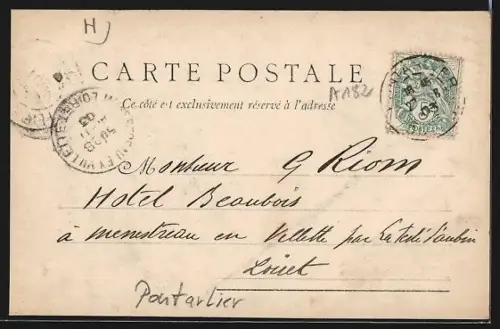 H
CARTE POSTALE
Ce côté est exclusivement réservé à l'adresse
A182
Monsieur G Riom
Hotel Beaubois
à menestreau en Villette par La ferté St aubin
Loiret
Pontarlier